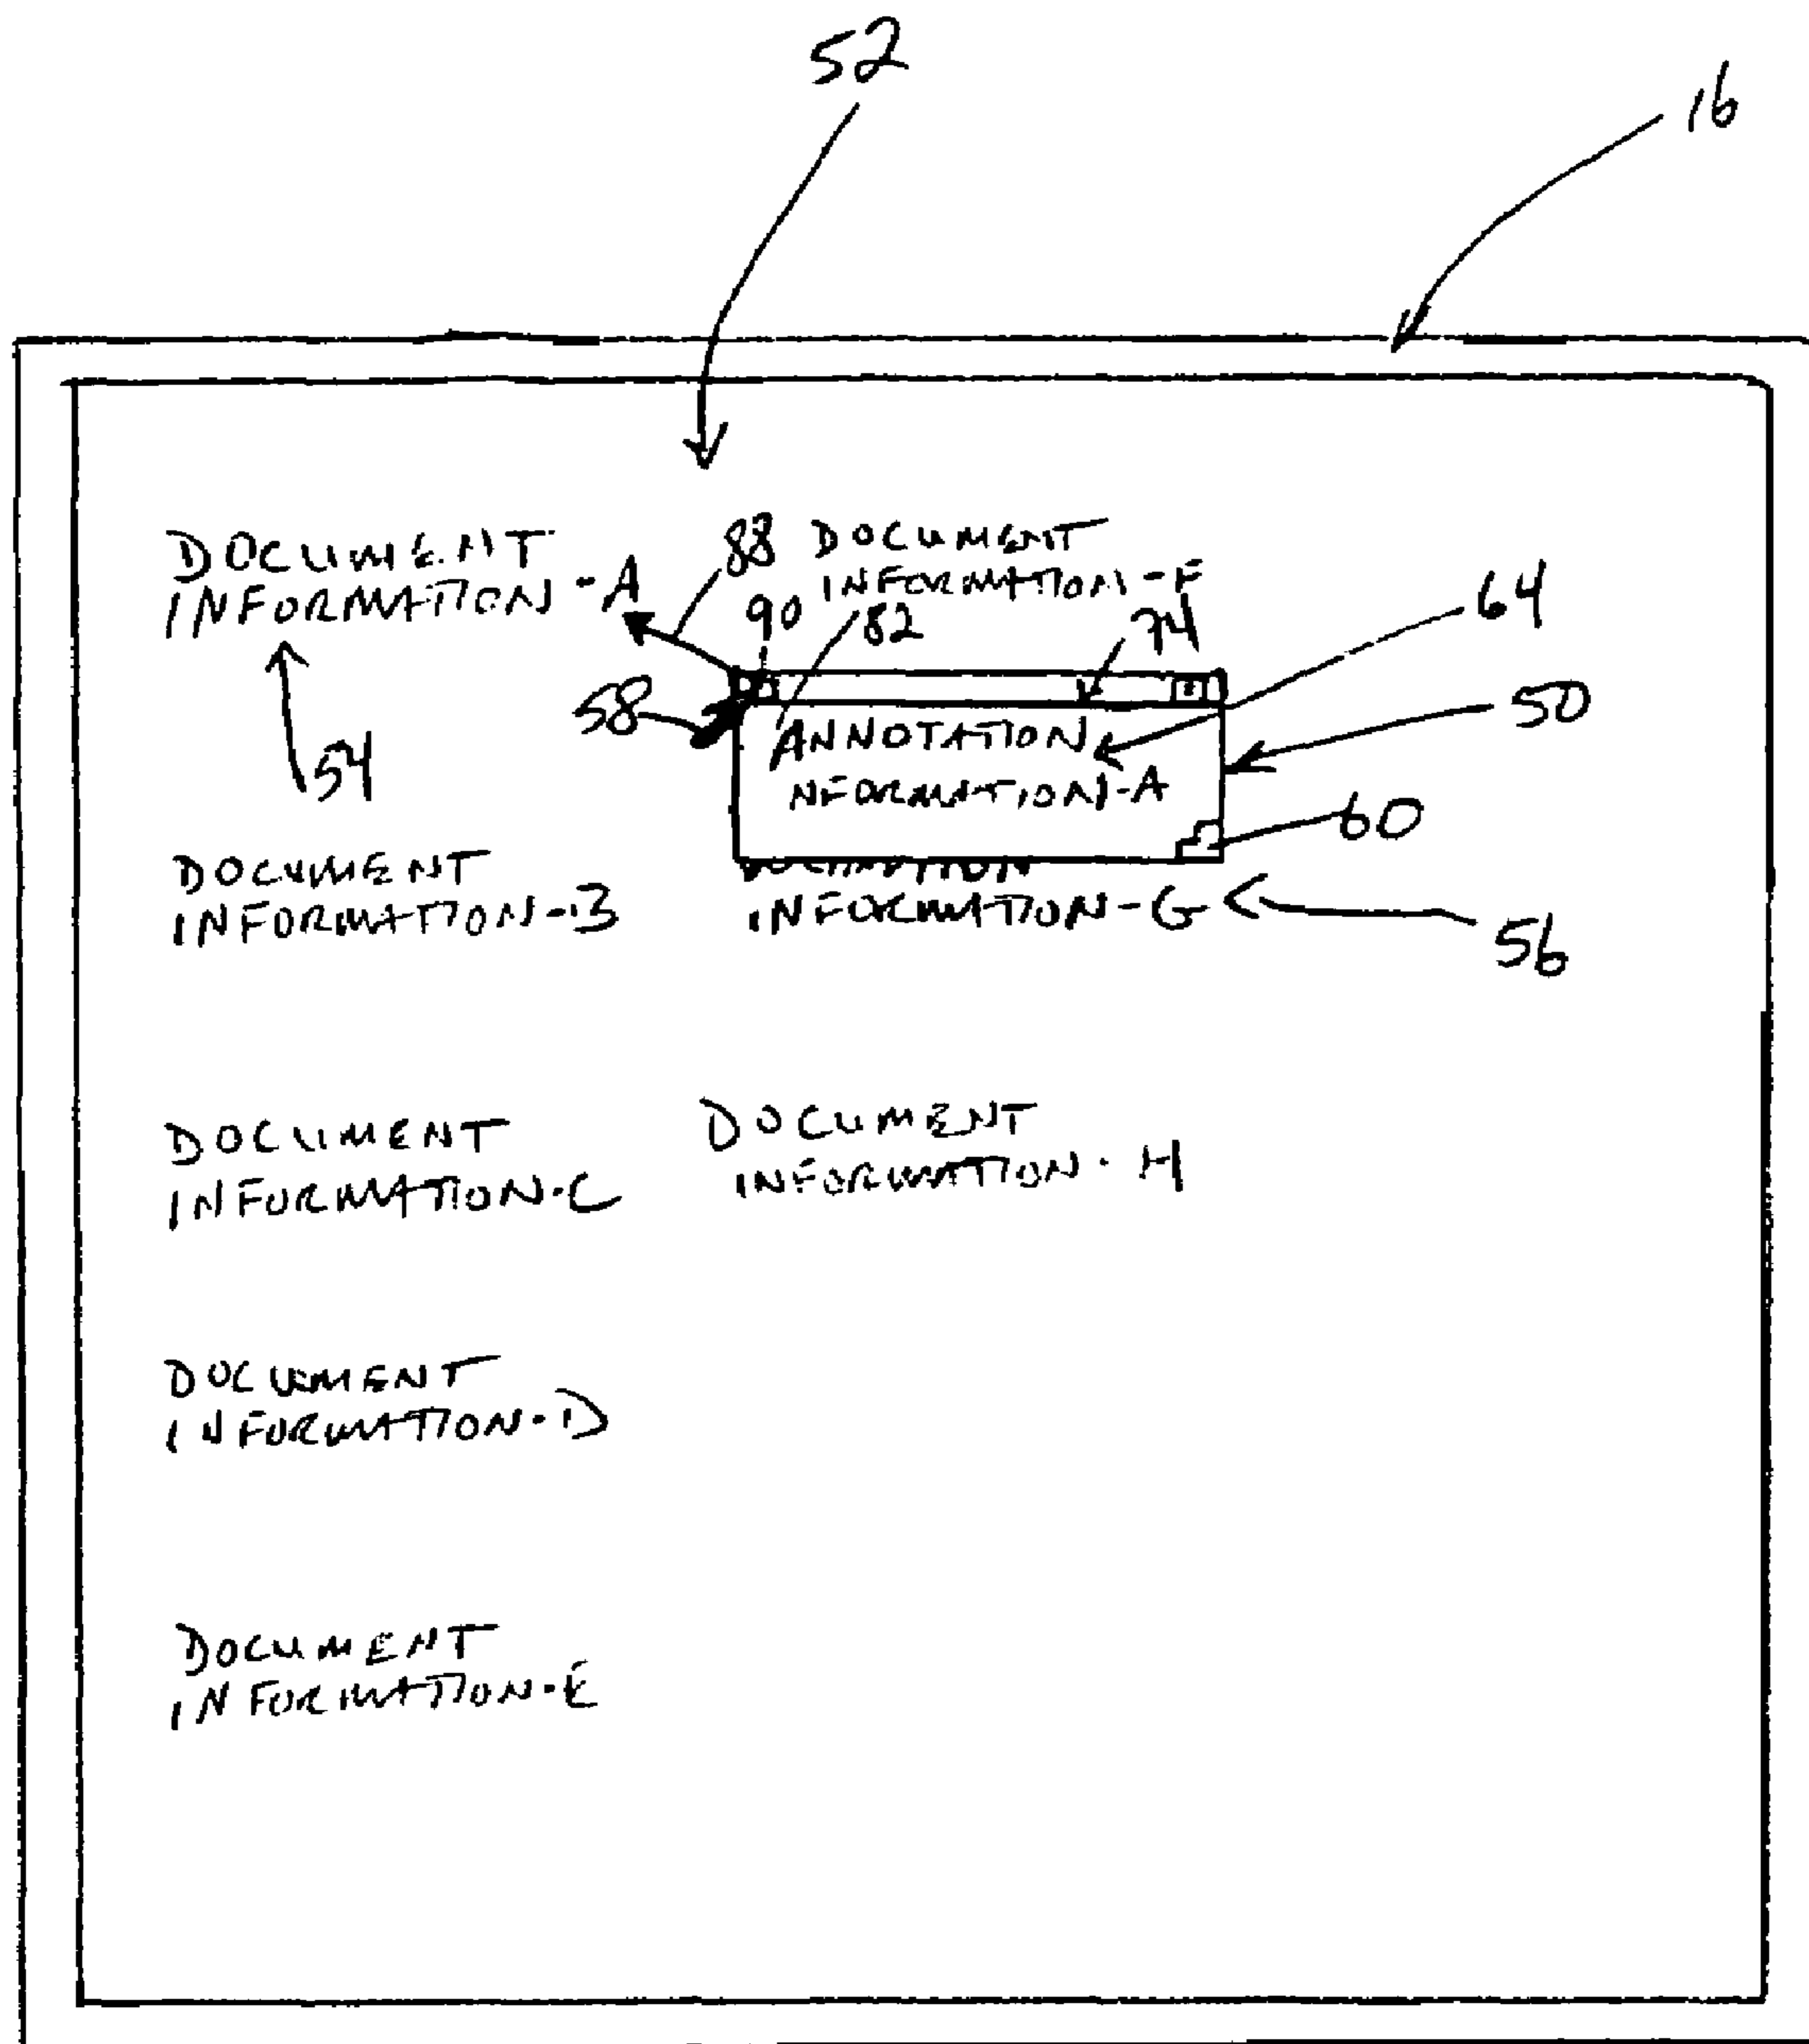 52
16
DOCUMENT
INFORMATION-A
88
DOCUMENT
INFORMATION-F
90
82
74
64
58
50
54
ANNOTATION
NFORMATION-A
60
DOCUMENT
INFORMATION-B
INFORMATION-G
56
DOCUMENT
INFORMATION-C
DOCUMENT
INFORMATION-H
DOCUMENT
INFORMATION-D
DOCUMENT
INFORMATION-E